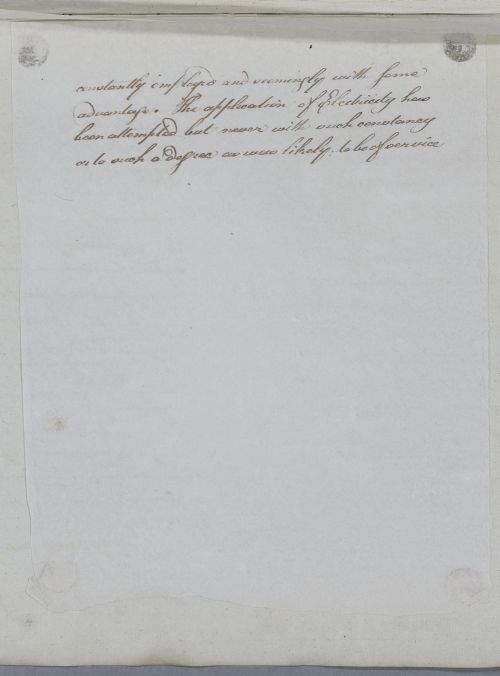 constantly employed and seemingly with some
advantage. The application of Electricity has
been attempted but never with such constancy
or to such a degree as was likely to be of service